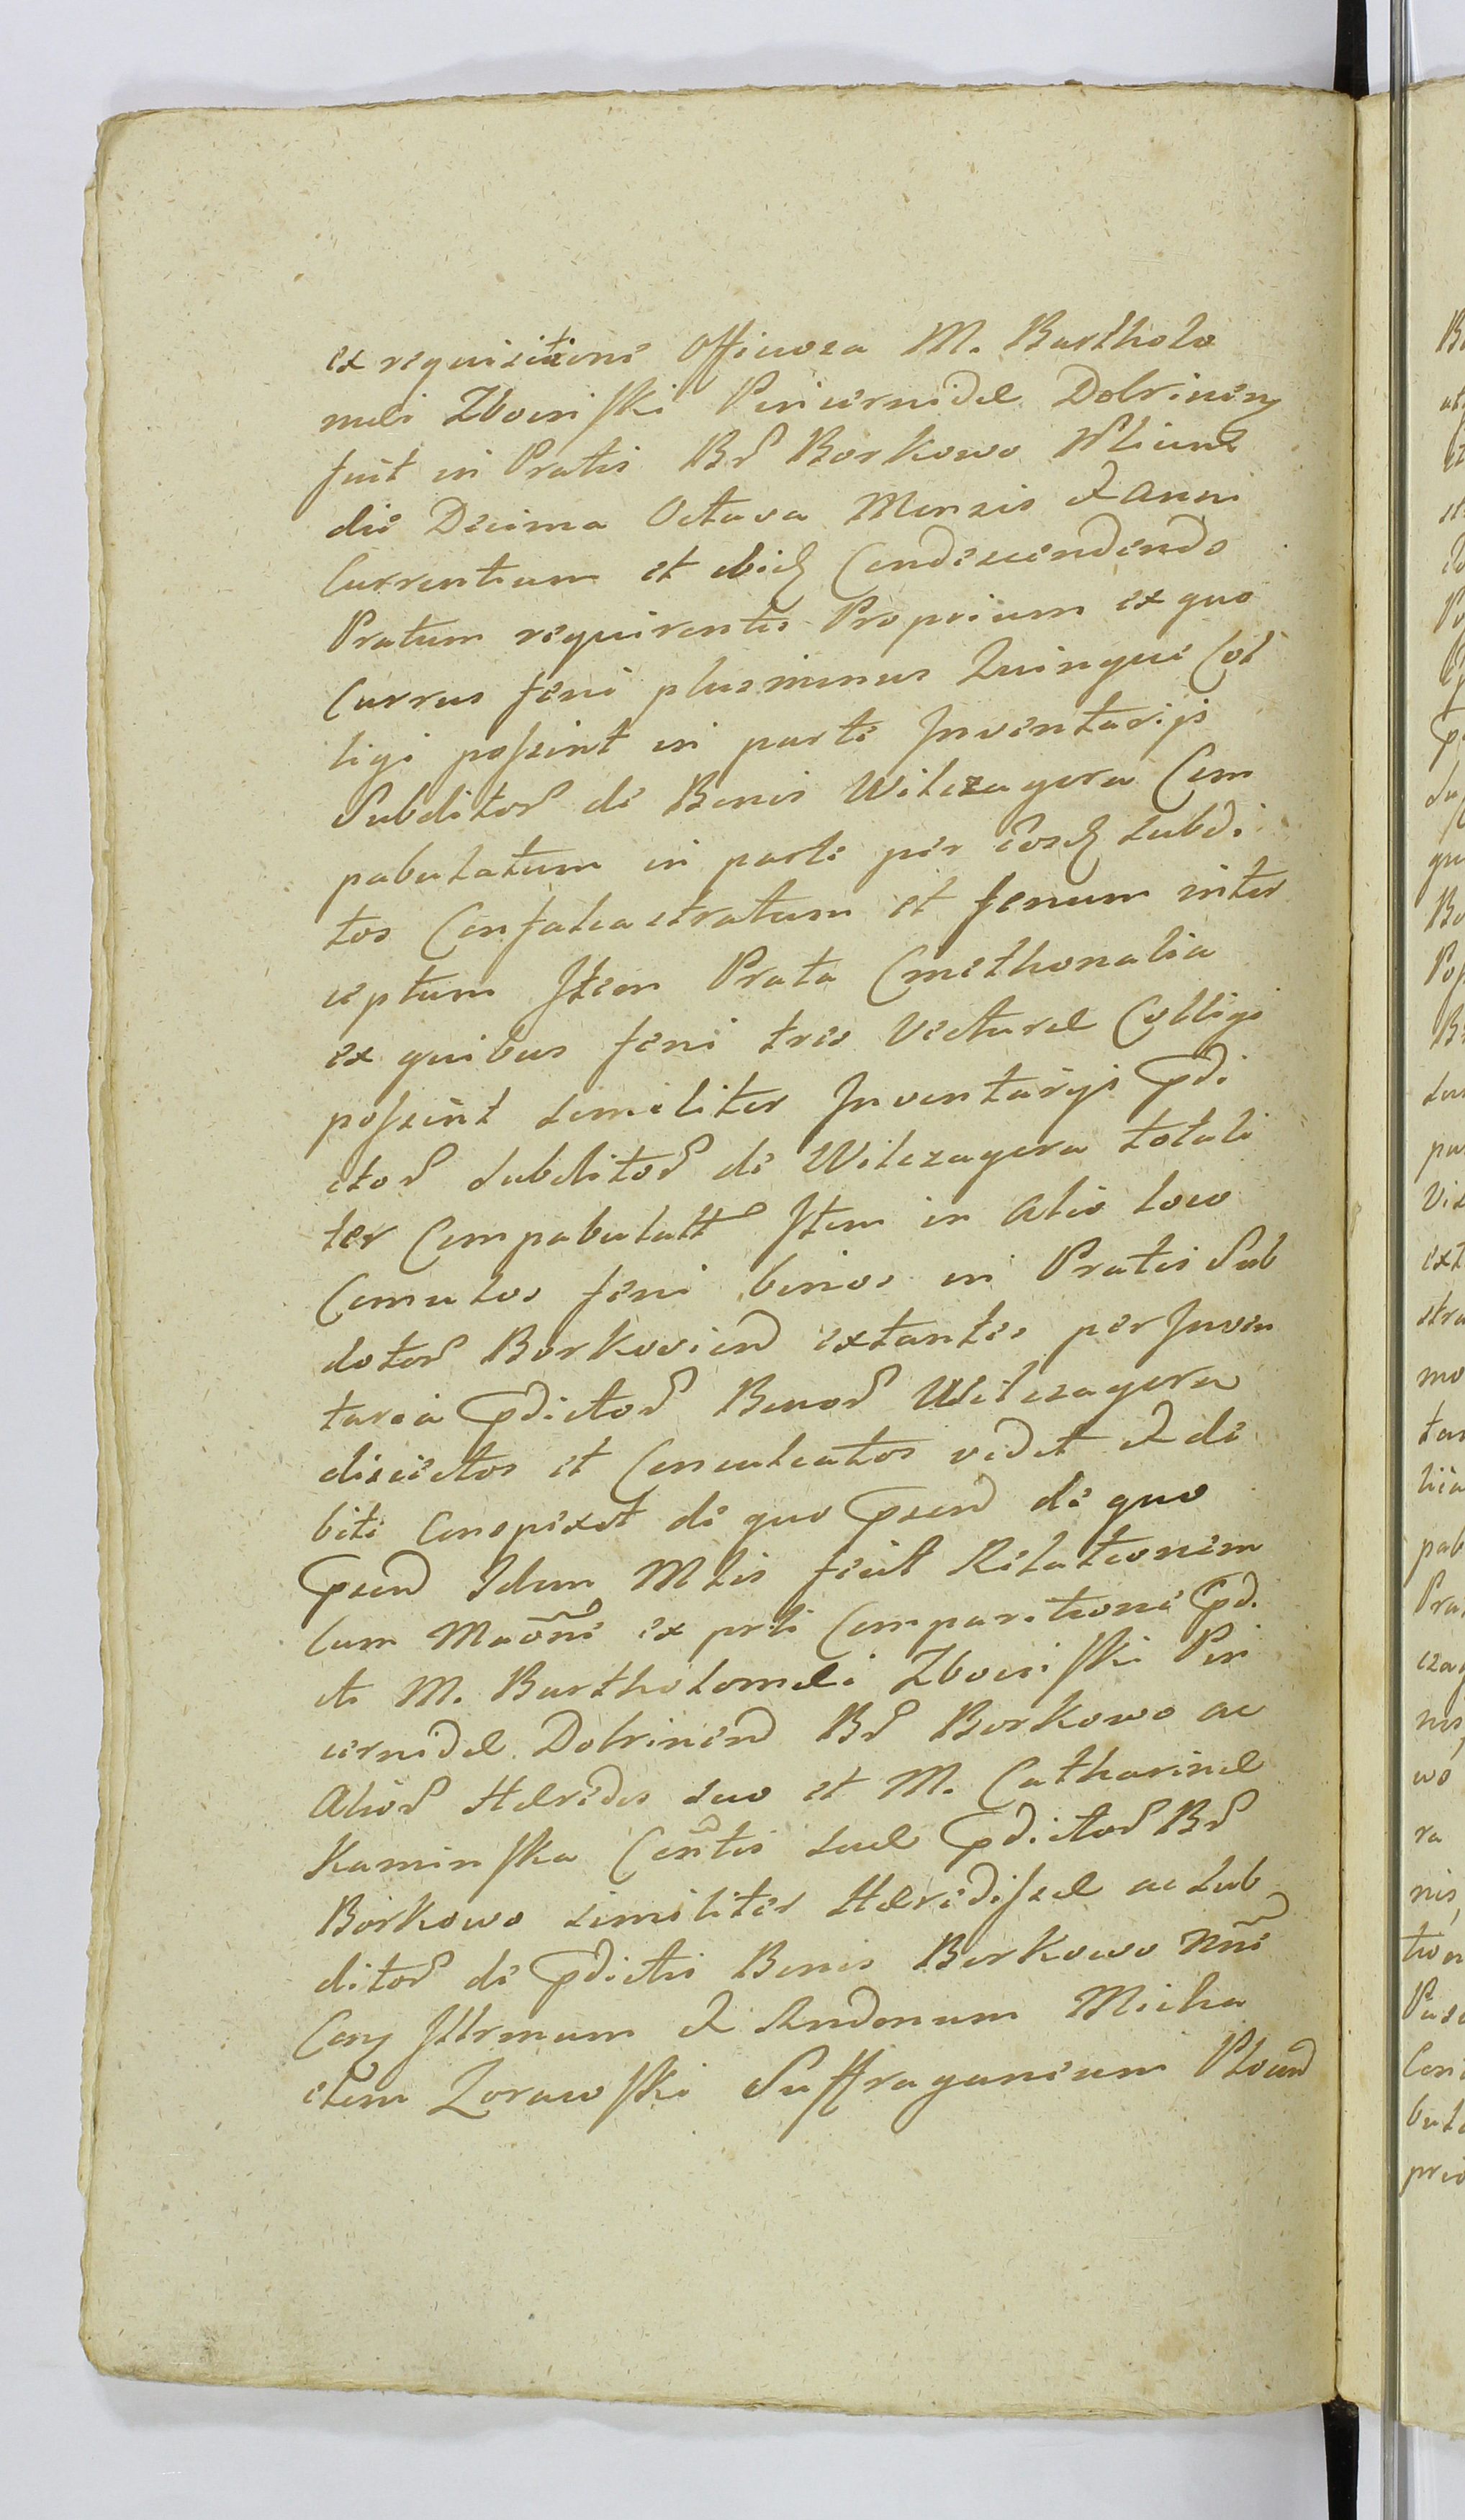 ex requisitione Officiosa M. Bartholo
mæi Zboinski Pincernidæ Dobrinen
fuit in Pratis Br Borkowo
die Decima Octava Mensis & Anni
Currentium et ibid Condescendendo
Pratum requirentis Proprium ex quo
Currus feni plusminus Quinque Col
ligi possint in parte Inventarijs
Subditor de Bonis Wilczagora Com
pabulatum in parte per eosd Subdi
tos Confalcastratum et fenum inter
ceptum Item Prata Cmethonalia
ex quibus feni tres Vecturæ Colligi
possint similiter Inventarijs Prdi
ctor Subditor de Wilczagora totali
ter Compabulatt Item in Alio loco
Cumulos feni binos in Pratis Sub
dotor Borkovien extantes per Inven
taria Prdictor Bonor Wilczagora
disiectos et Conculcatos vidit & de
bite Conspexit de quo Prsen de quo
Prsen Idem Mtis fecit Relationem
Cum Maone ex prte Comparitione Prd.
cti M. Bartholomæi Zboinski Pin
cernidæ Dobrinen Br Borkowo ac
Alior Hæredis suo et M. Catharinæ
Kaminska Contis suæ Prdictor Br
Borkowo similiter Hæredissæ ac Sub
ditor de Prdictis Bonis Borkowo Nne
Con Illrmum & Rndmum Micha
elem Zorawski Suffraganeum Plocen